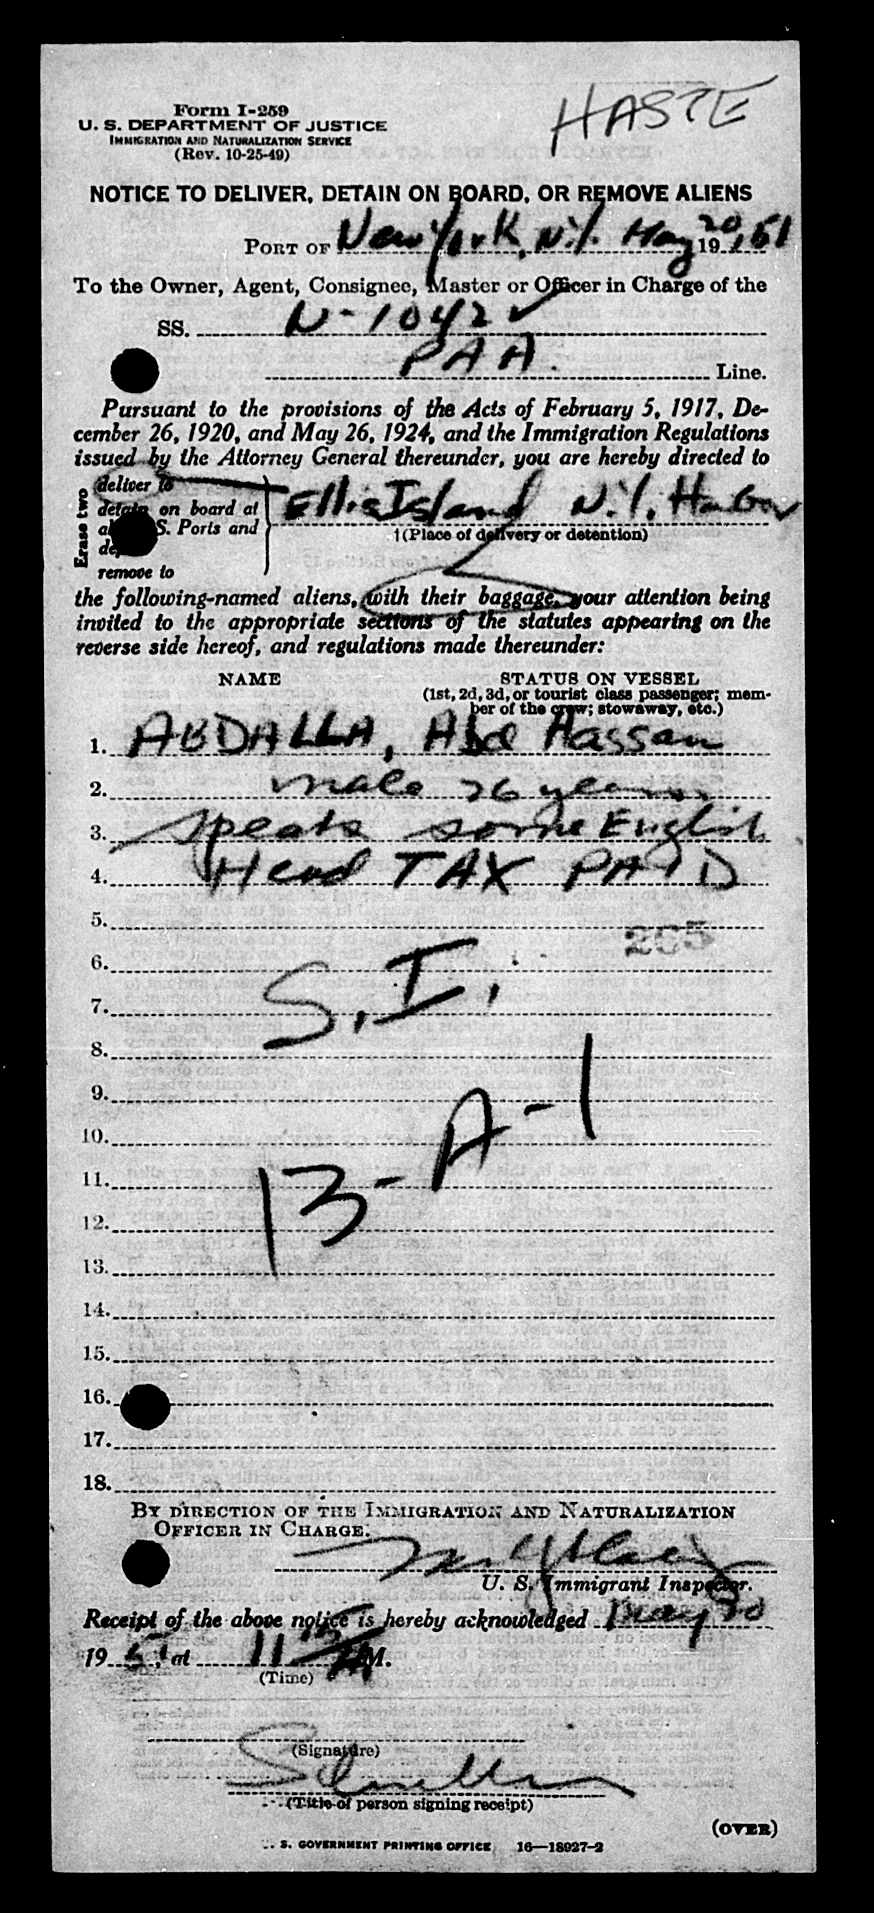 HASTE
Form I-259
U. S. DEPARTMENT OF JUSTICE
IMMIGRATION AND NATURALIZATION SERVICE
(Rev. 10-25-49)
NOTICE TO DELIVER, DETAIN ON BOARD, OR REMOVE ALIENS
PORT OF New York, N.Y. May 20, 1951
To the Owner, Agent, Consignee, Master or Officer in Charge of the
SS. N-1042 ✓
PAA. Line.
Pursuant to the provisions of the Acts of February 5, 1917, De-
cember 26, 1920, and May 26, 1924, and the Immigration Regulations
issued by the Attorney General thereunder, you are hereby directed to
Erase two
deliver to
detain on board at
S. Ports and
remove to
Ellis Island N.Y. Harbor
†(Place of delivery or detention)
the following-named aliens, with their baggage, your attention being
invited to the appropriate sections of the statutes appearing on the
reverse side hereof, and regulations made thereunder:
NAME
STATUS ON VESSEL
(1st, 2d, 3d, or tourist class passenger; mem-
ber of the crew; stowaway, etc.)
1. ABDALLA, Abd Hassan
2. male 26 years
3. Speaks some English
4. Head TAX PAID
5.
265
6.
S. I.
7.
8.
9.
B-A-1
10.
11.
12.
13.
14.
15.
16.
17.
18.
BY DIRECTION OF THE IMMIGRATION AND NATURALIZATION
OFFICER IN CHARGE:
U. S. Immigrant Inspector.
Receipt of the above notice is hereby acknowledged May 20
1951, at 11 15 AM.
(Time)
(Signature)
(Title of person signing receipt)
(OVER)
S. GOVERNMENT PRINTING OFFICE 16—18927-2